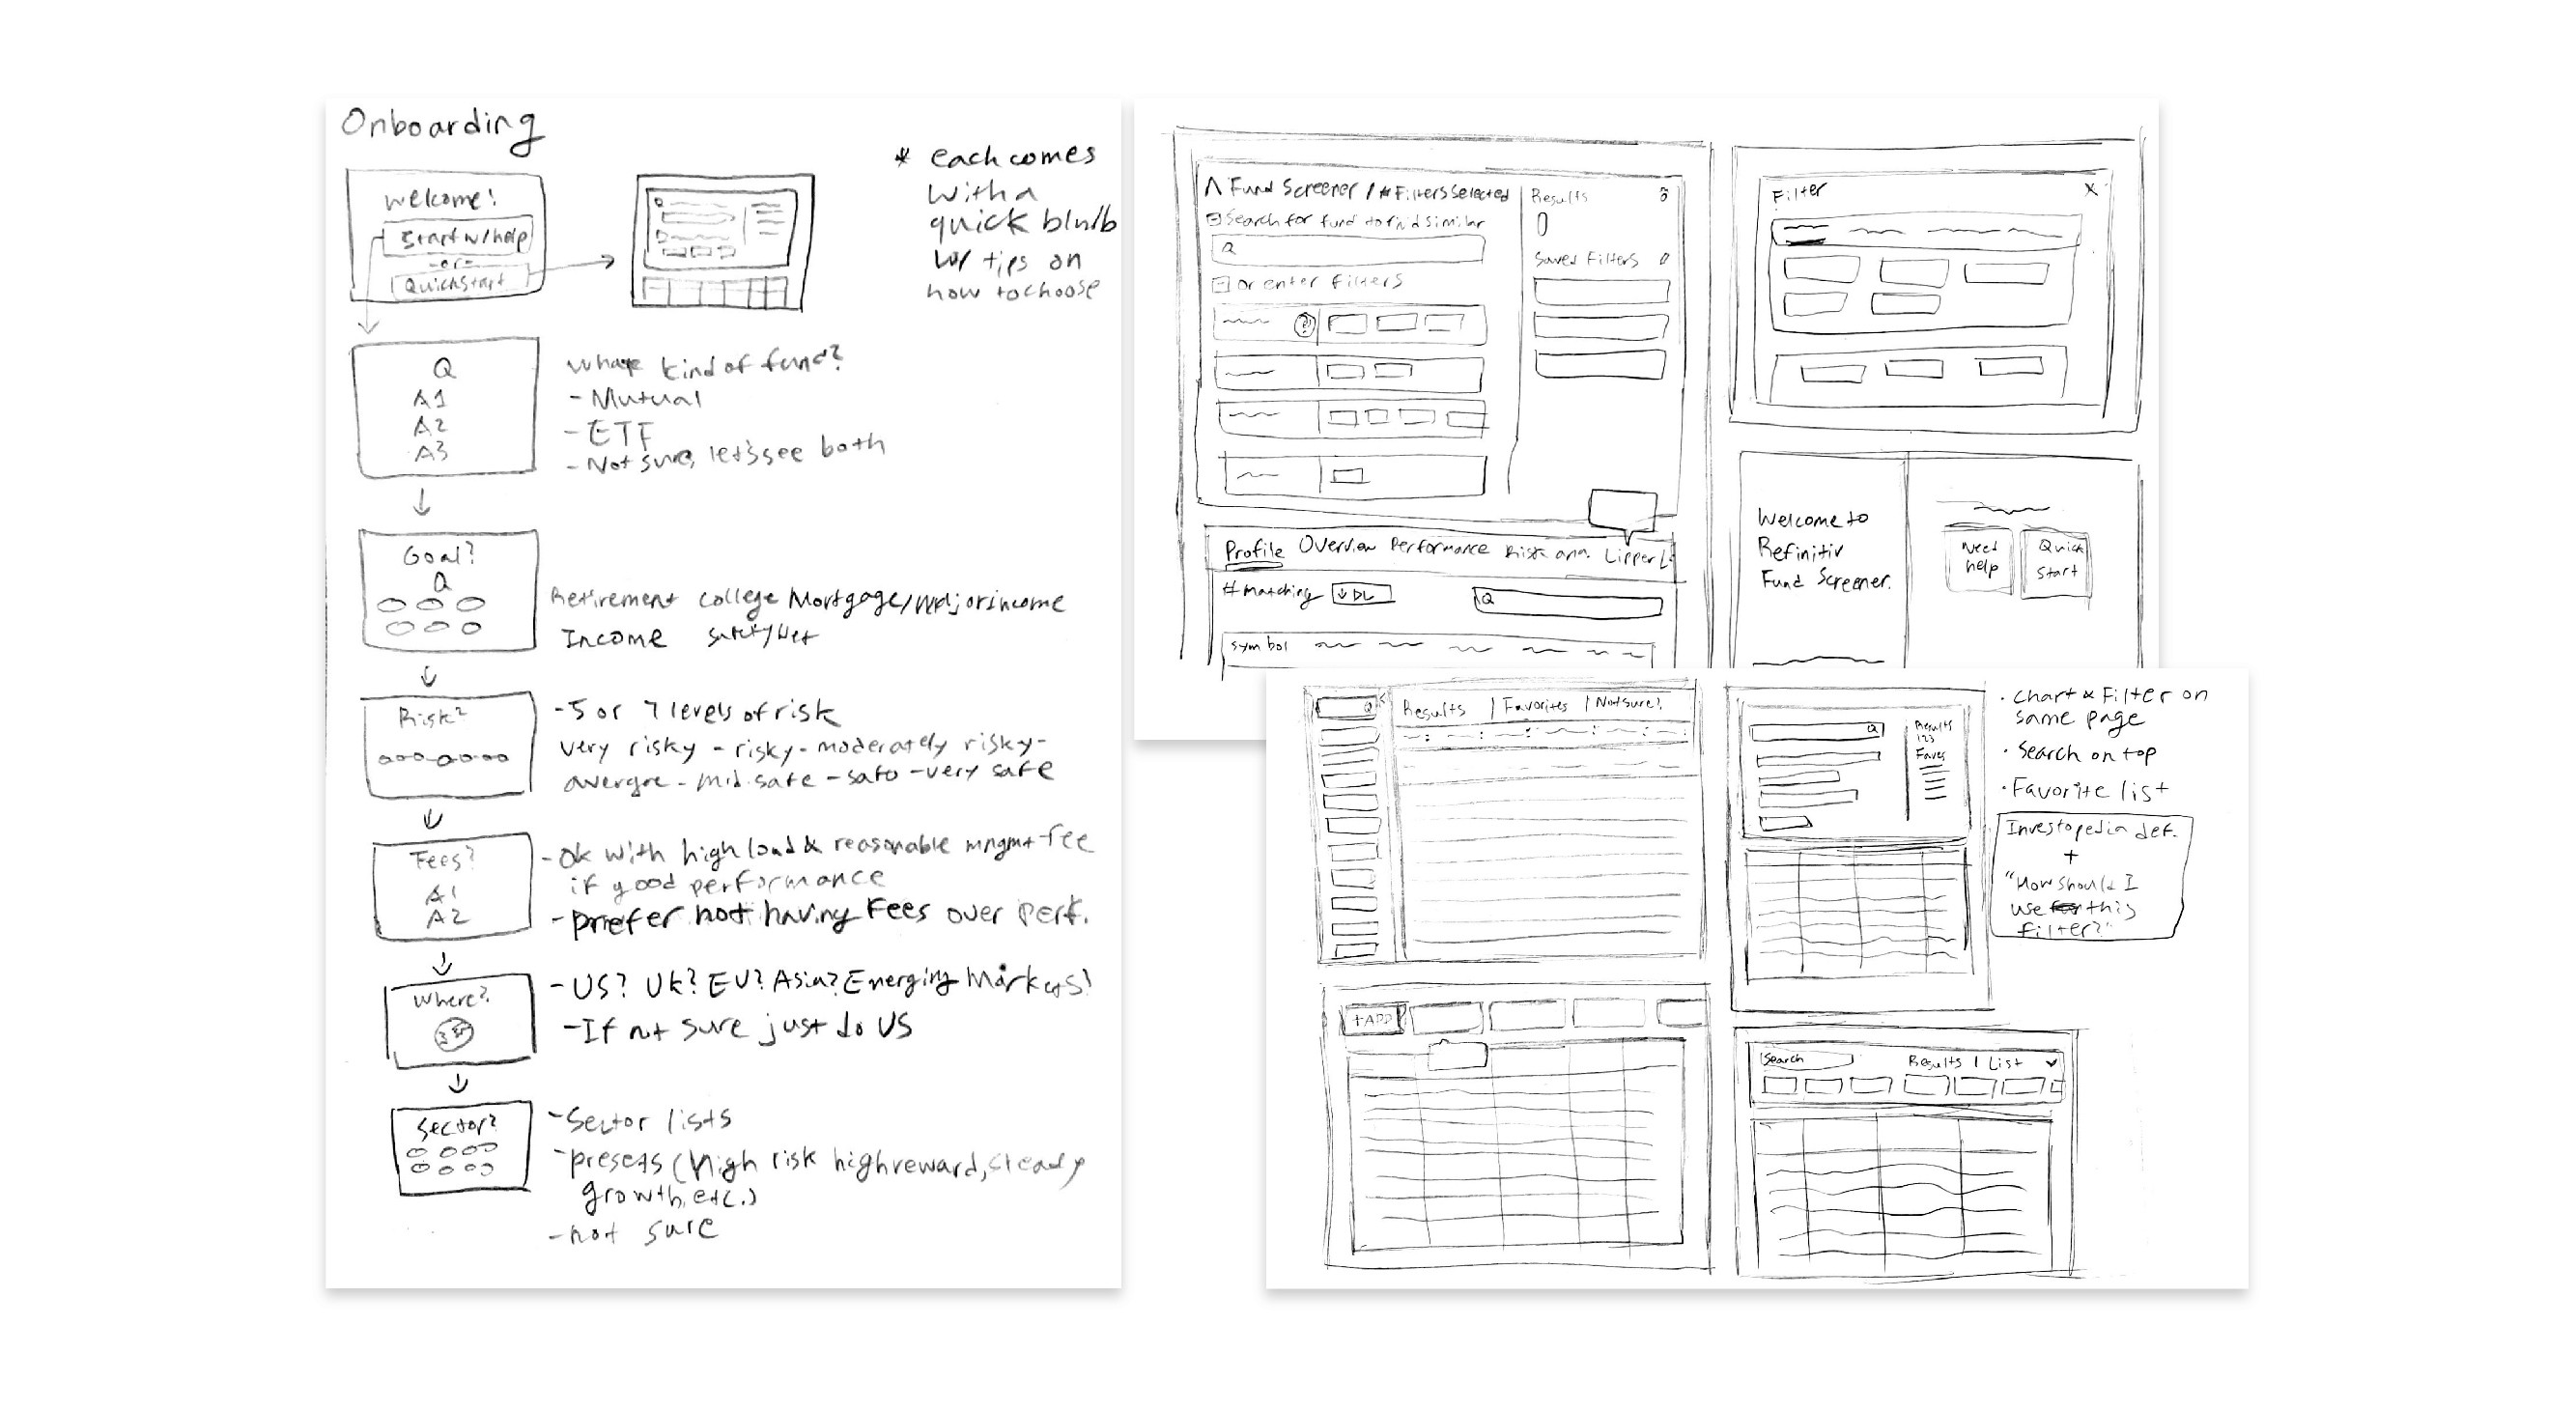 Onboarding
Welcome!
Start w/help
-or-
Quickstart
* each comes
with a
quick blurb
w/ tips on
how to choose
Q
A1
A2
A3
What kind of fund?
- Mutual
- ETF
- Not sure, let's see both
Goal?
Q
Retirement college Mortgage/Major income
Income Safety Net
Risk?
- 5 or 7 levels of risk
very risky - risky - moderately risky -
avergre - mid. safe - safe - very safe
Fees?
A1
A2
- Ok with high load & reasonable mngmt fee
if good performance
- prefer not having Fees over perf.
Where?
- US? UK? EU? Asia? Emerging Markets?
- If not sure just do US
Sector?
- Sector lists
- presets (High risk high reward, steady
growth, etc.)
- not sure
Λ Fund Screener / # Filters Selected
Search for fund to find similar
Q
Or enter filters
?
Results
0
Saved Filters
Profile Overview Performance Risk ana. Lipper L
# matching ↓DL Q
symbol
Filter X
Welcome to
Refinitiv
Fund Screener.
Need
help
Quick
Start
Results | Favorites | Not sure?
Results
123
Faves
· Chart & Filter on
same page
· Search on top
· Favorite list
Investopedia def.
+
"How should I
use this
filter?"
+ADD
Search Results | List